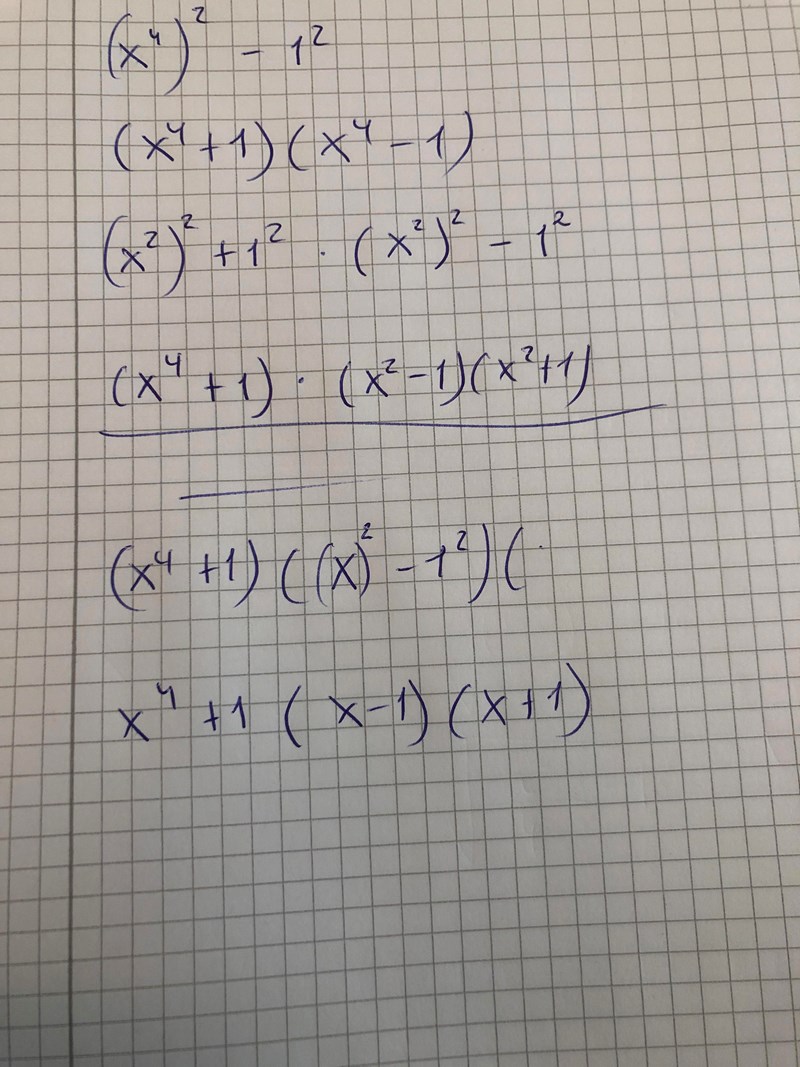 (x⁴)² - 1²
(x⁴ + 1)(x⁴ - 1)
(x²)² + 1² · (x²)² - 1²
(x⁴ + 1) · (x² - 1)(x² + 1)
(x⁴ + 1)((x)² - 1²)(
x⁴ + 1 (x - 1)(x + 1)